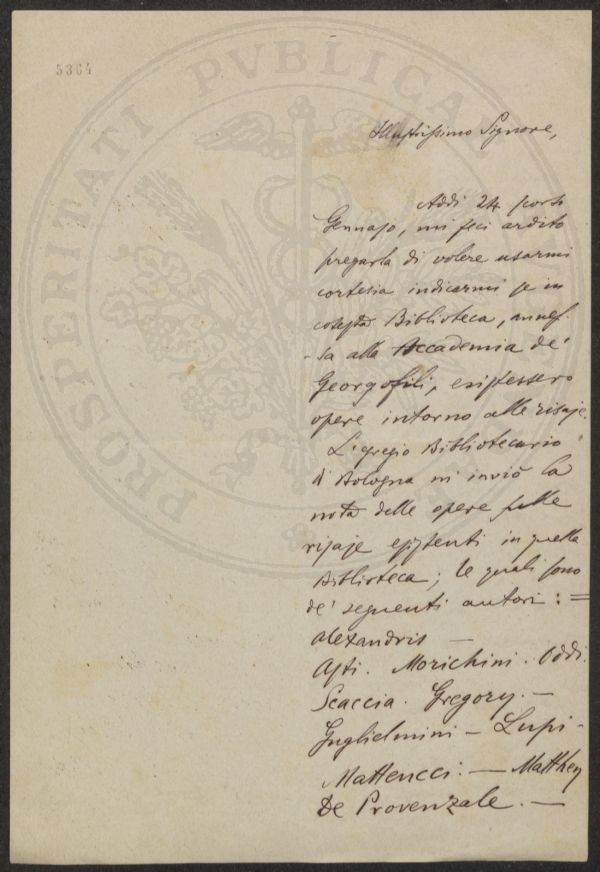 5364
PROSPERITATI PVBLICAE
Illustrissimo Signore,
Addi 24 scorso
Gennajo, mi feci ardito
pregarla di volere usarmi
cortesia indicarmi se in
cotesta Biblioteca, annes-
-sa alla Accademia de'
Georgofili, esistessero
opere intorno alle risaje.
L'egregio Bibliotecario
di Bologna mi inviò la
nota delle opere sulle
risaje esistenti in quella
Biblioteca; le quali sono
de' seguenti autori: =
Alexandris —
Asti. Morichini. Oddi.
Scaccia. Gregory. —
Guglielmini — Lupi -
Matteucci. — Matthey
De Provenzale. —